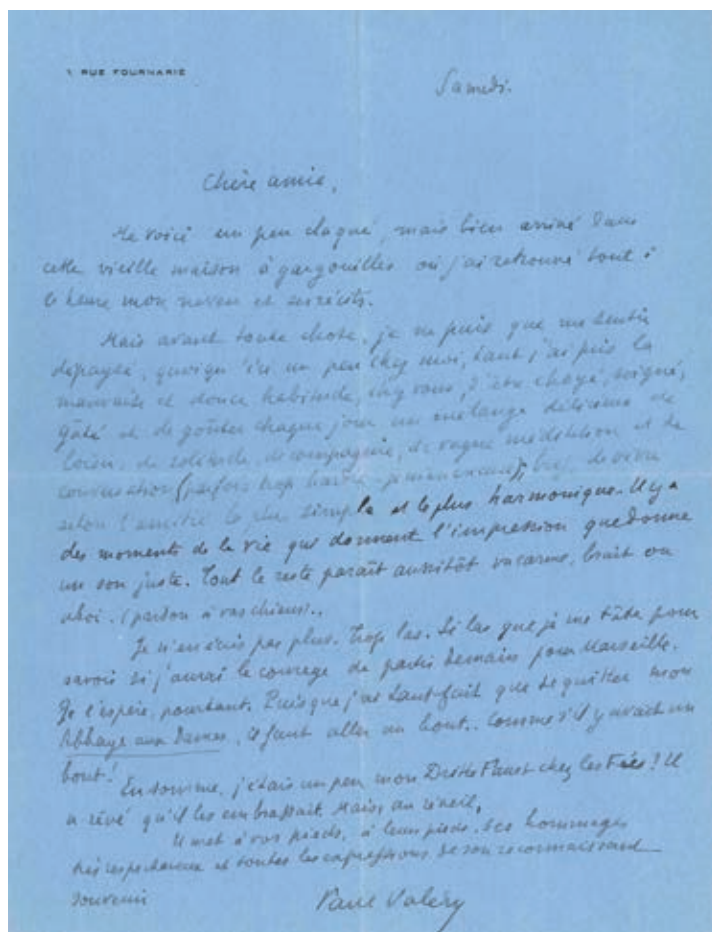 1 RUE FOURNARIÉ
Samedi.
Chère amie,
Me voici un peu claqué, mais bien arrivé dans
cette vieille maison à gargouilles où j'ai retrouvé tout à
l'heure mon neveu et
Mais avant toute chose, je ne puis que me sentir
dépaysé, quoiqu'ici un peu chez moi, tant j'ai pris la
mauvaise et douce habitude, chez vous, d'être choyé, soigné,
gâté et de goûter chaque jour un mélange délicieux de
loisir, de solitude, de compagnie, de vague méditation et de
conversation (parfois trop haute - bref, de vivre
selon l'amitié la plus simple et le plus harmonique. Il y a
des moments de la vie qui donnent l'impression que donne
un son juste. Tout le reste paraît aussitôt vacarme, bruit ou
aboi. (pardon à vos chiens)..
Je n'en écris pas plus. Trop las. Si las que je me tâte pour
savoir si j'aurai le courage de partir demain pour Marseille.
Je l'espère, pourtant. Puisque j'ai tant fait que de quitter mon
Abbaye aux Dames, il faut aller au bout.. Comme s'il y avait un
bout!
En somme, j'étais un peu mon Faust chez les Fées! Il
a rêvé qu'il les embrassait. Mais, au réveil,
Il met à vos pieds, à leurs pieds, ses hommages
très respectueux et toutes les expressions de son reconnaissant
souvenir
Paul Valéry